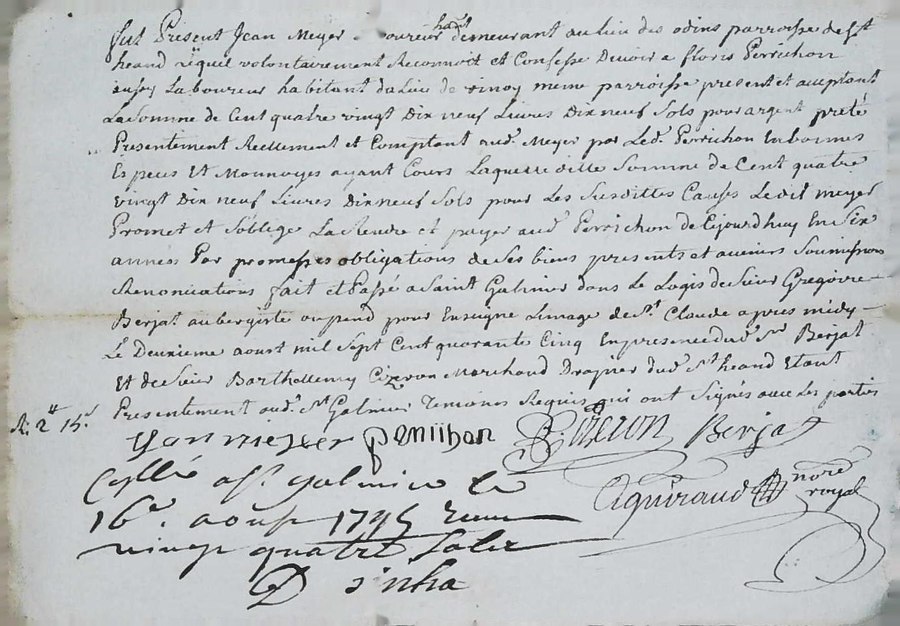 fut Présent Jean Meyer Laboureur demeurant au lieu des odins parroisse de st
heand lequel volontairement Reconnoit et Confesse Devoir a floris Perrichon
aussy Laboureur habitant du Lieu de meme parroisse present et acceptant
La Somme de Cent quatre vingt Dix neuf Livres Dix neuf Sols pour argent preté
Presentement Reellement et Comptant aud. Meyer par Led. Perrichon En bonnes
Especes Et Monnoyes ayant Cours Laquelle ditte Somme de Cent quatre
vingt Dix neuf Livres Dix neuf Sols pour Les Susdittes Causes Ledit meyer
Promet et S'oblige La Rendre et payer aud Perrichon de Cejourdhuy En Six
années Par promesses obligations de Ses biens presents et avenirs Soumissions
Renonciations fait et Passé a Saint Galmier dans Le Logis de Sieur Gregoire
Berjat aubergiste ou pend pour Ensegne Limage de St. Claude apres midy
Le Deuxieme aoust mil Sept Cent quarante Cinq En presence dud. Sr. Berjat
Et de Sieur Barthellemy Cizeron Marchand Drapier dud. St. heand Etant
Presentement aud. St. Galmier Temoins Requis qui ont Signés avec Les parties
R. 2 15s
meyer perrichon Cizeron Berjat
Cgllé a St. galmier le
16e. aoust 1745 Recu
vingt quatre Sols
nore
royal